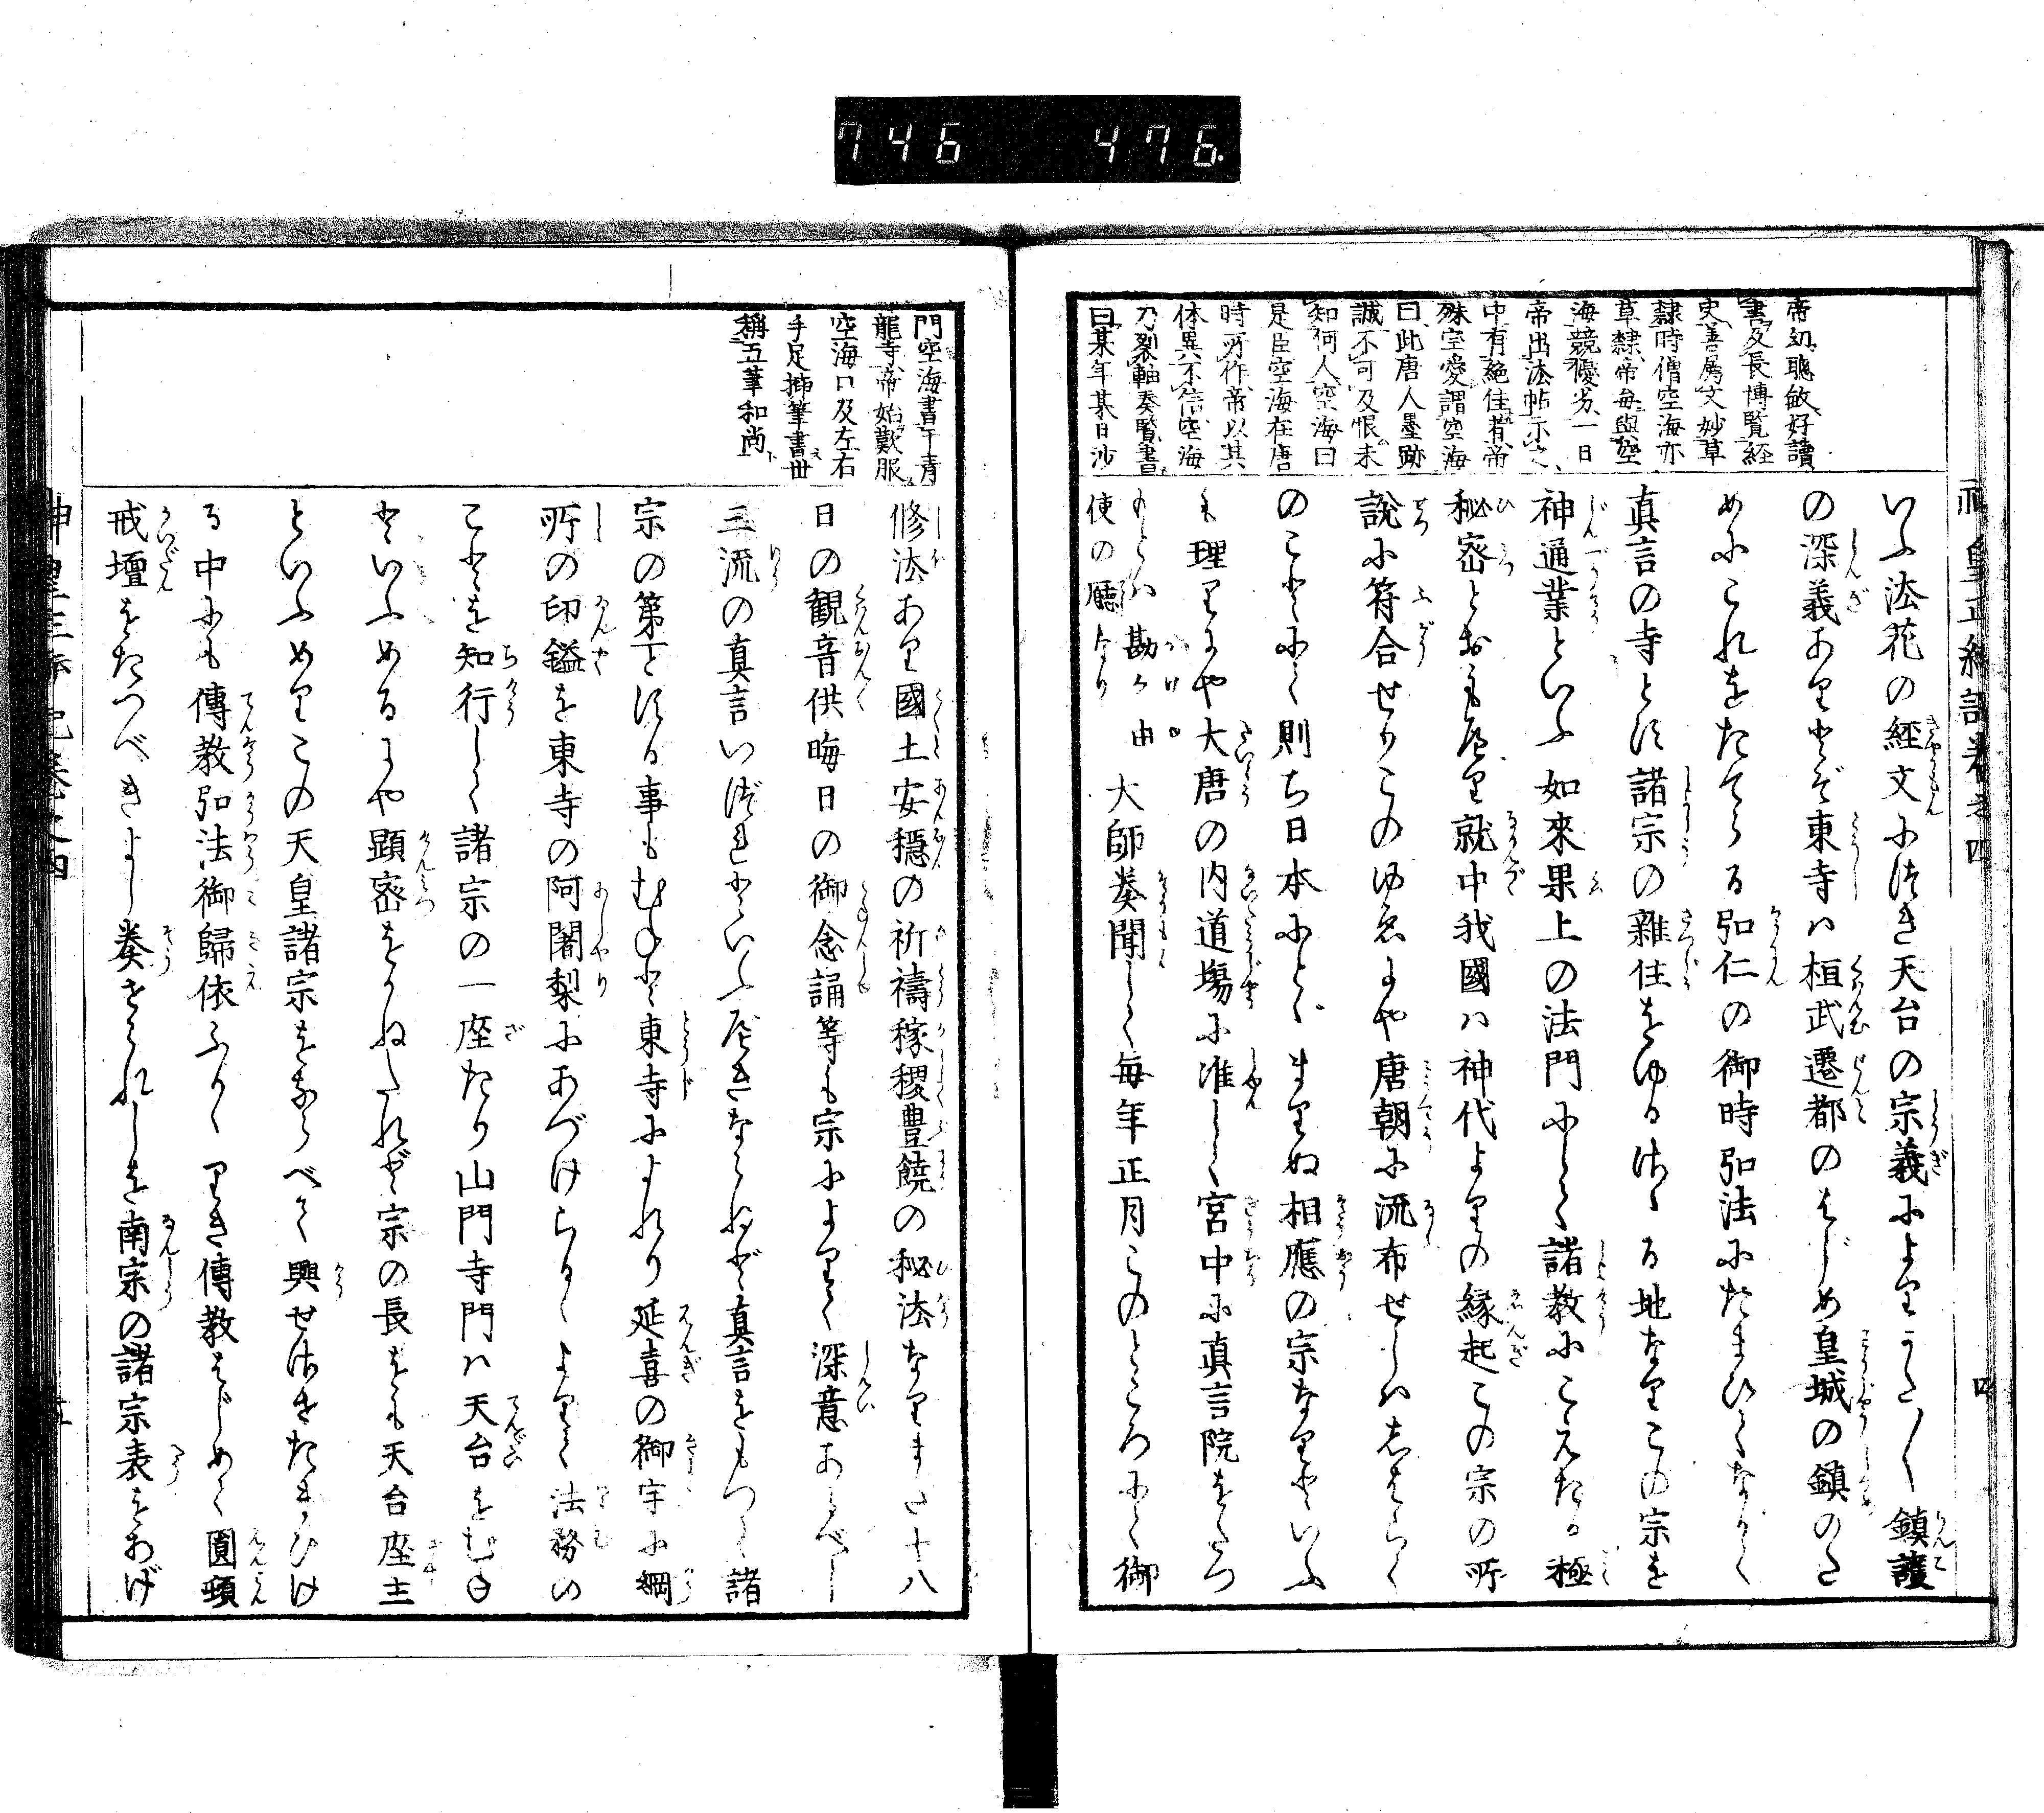 746 476.
神皇正統記巻之四
四
帝幼聰敏好讀
書及長博覧経
史善屬文妙草
隸時僧空海亦
草隸帝毎與空
海競優劣一日
帝出法帖示之
中有絶佳者帝
殊宝愛謂空海
曰此唐人墨跡
誠不可及恨未
知何人空海曰
是臣空海在唐
時所作帝以其
体異不信空海
乃裂軸奏覧書
曰某年某日沙
いふ法花の経文につき天台の宗義によりかた〳〵鎮護
の深義ありとぞ東寺ハ桓武遷都のはじめ皇城の鎮のた
めにこれをたてらる弘仁の御時弘法にたまひてながく
真言の寺とす諸宗の雑住をゆるさゞる地なりこの宗を
神通業といふ如來果上の法門にして諸教にこえたる極
秘密とおもへり就中我國ハ神代よりの縁起この宗の所
説に符合せりこのゆゑにや唐朝に流布せしハしばらく
のことにて則ち日本にとゞまりぬ相應の宗なりといふ
も理りにや大唐の内道場に准じて宮中に真言院をたつ
もとハ勘解由
使の廳なり
大師奏聞して毎年正月このところにて御
門空海書于青
龍寺帝始歎服
空海口及左右
手足挿筆書世
稱五筆和尚
修法あり國土安穏の祈禱稼稷豊饒の秘法なりまた十八
日の観音供晦日の御念誦等も宗によりて深意あるべし
三流の真言いづれといふべきならねど真言をもつて諸
宗の第一とする事もむねと東寺によれり延喜の御宇に綱
所の印鎰を東寺の阿闍梨にあづけらるよりて法務の
ことを知行して諸宗の一座たり山門寺門ハ天台をむね
といふめるにや顕密をかねたれど宗の長をも天台座主
といふめりこの天皇諸宗をならべて興せさせたまひけ
る中にも傳教弘法御歸依ふかゝりき傳教はじめて圓頓
戒壇をたつべきよし奏せられしを南宗の諸宗表をあげ
神皇正統記巻之四